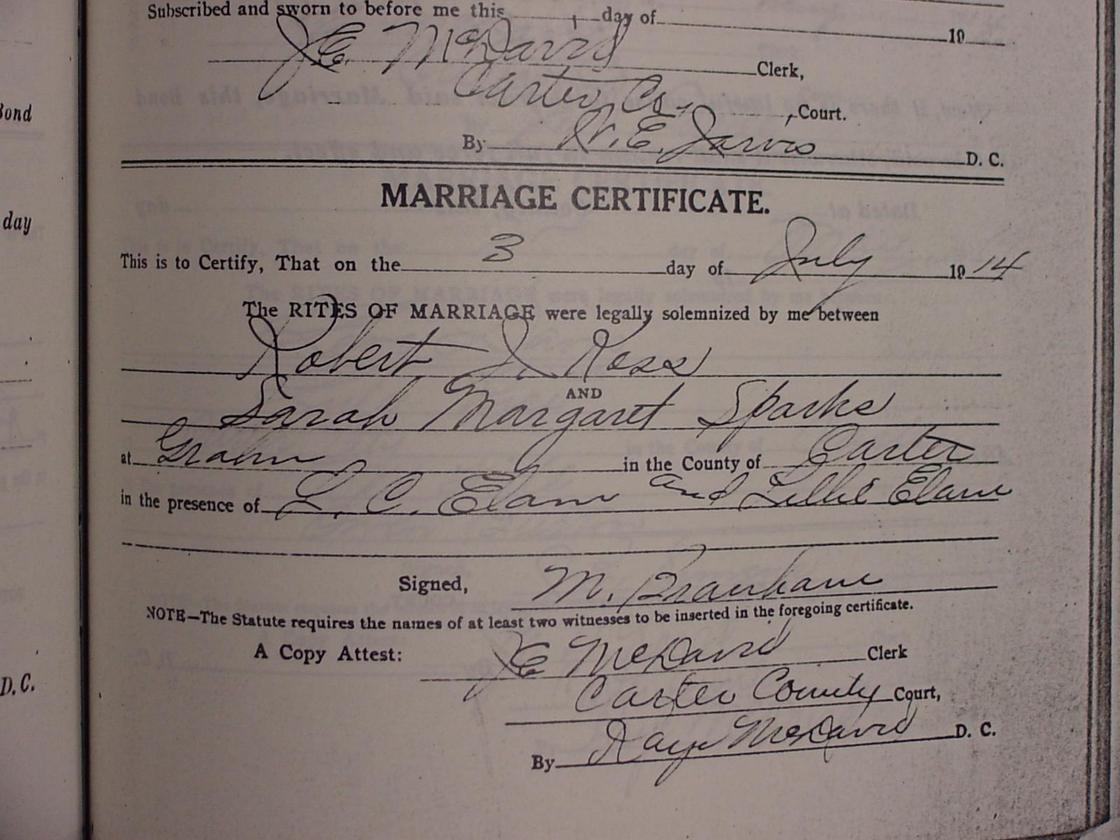 Subscribed and sworn to before me this day of 19
J.E. McDavid Clerk,
Carter Co., , Court.
By W. E. Jarvis D. C.
MARRIAGE CERTIFICATE.
This is to Certify, That on the 3 day of July 1914
The RITES OF MARRIAGE were legally solemnized by me between
Robert J. Ross
AND
Sarah Margaret Sparks
at Grahn in the County of Carter
in the presence of L. C. Elam and Lillie Elam
Signed, M. Branham
NOTE—The Statute requires the names of at least two witnesses to be inserted in the foregoing certificate.
A Copy Attest: J E McDavid Clerk
Carter County Court,
By McDavid D. C.
Bond
day
D. C.